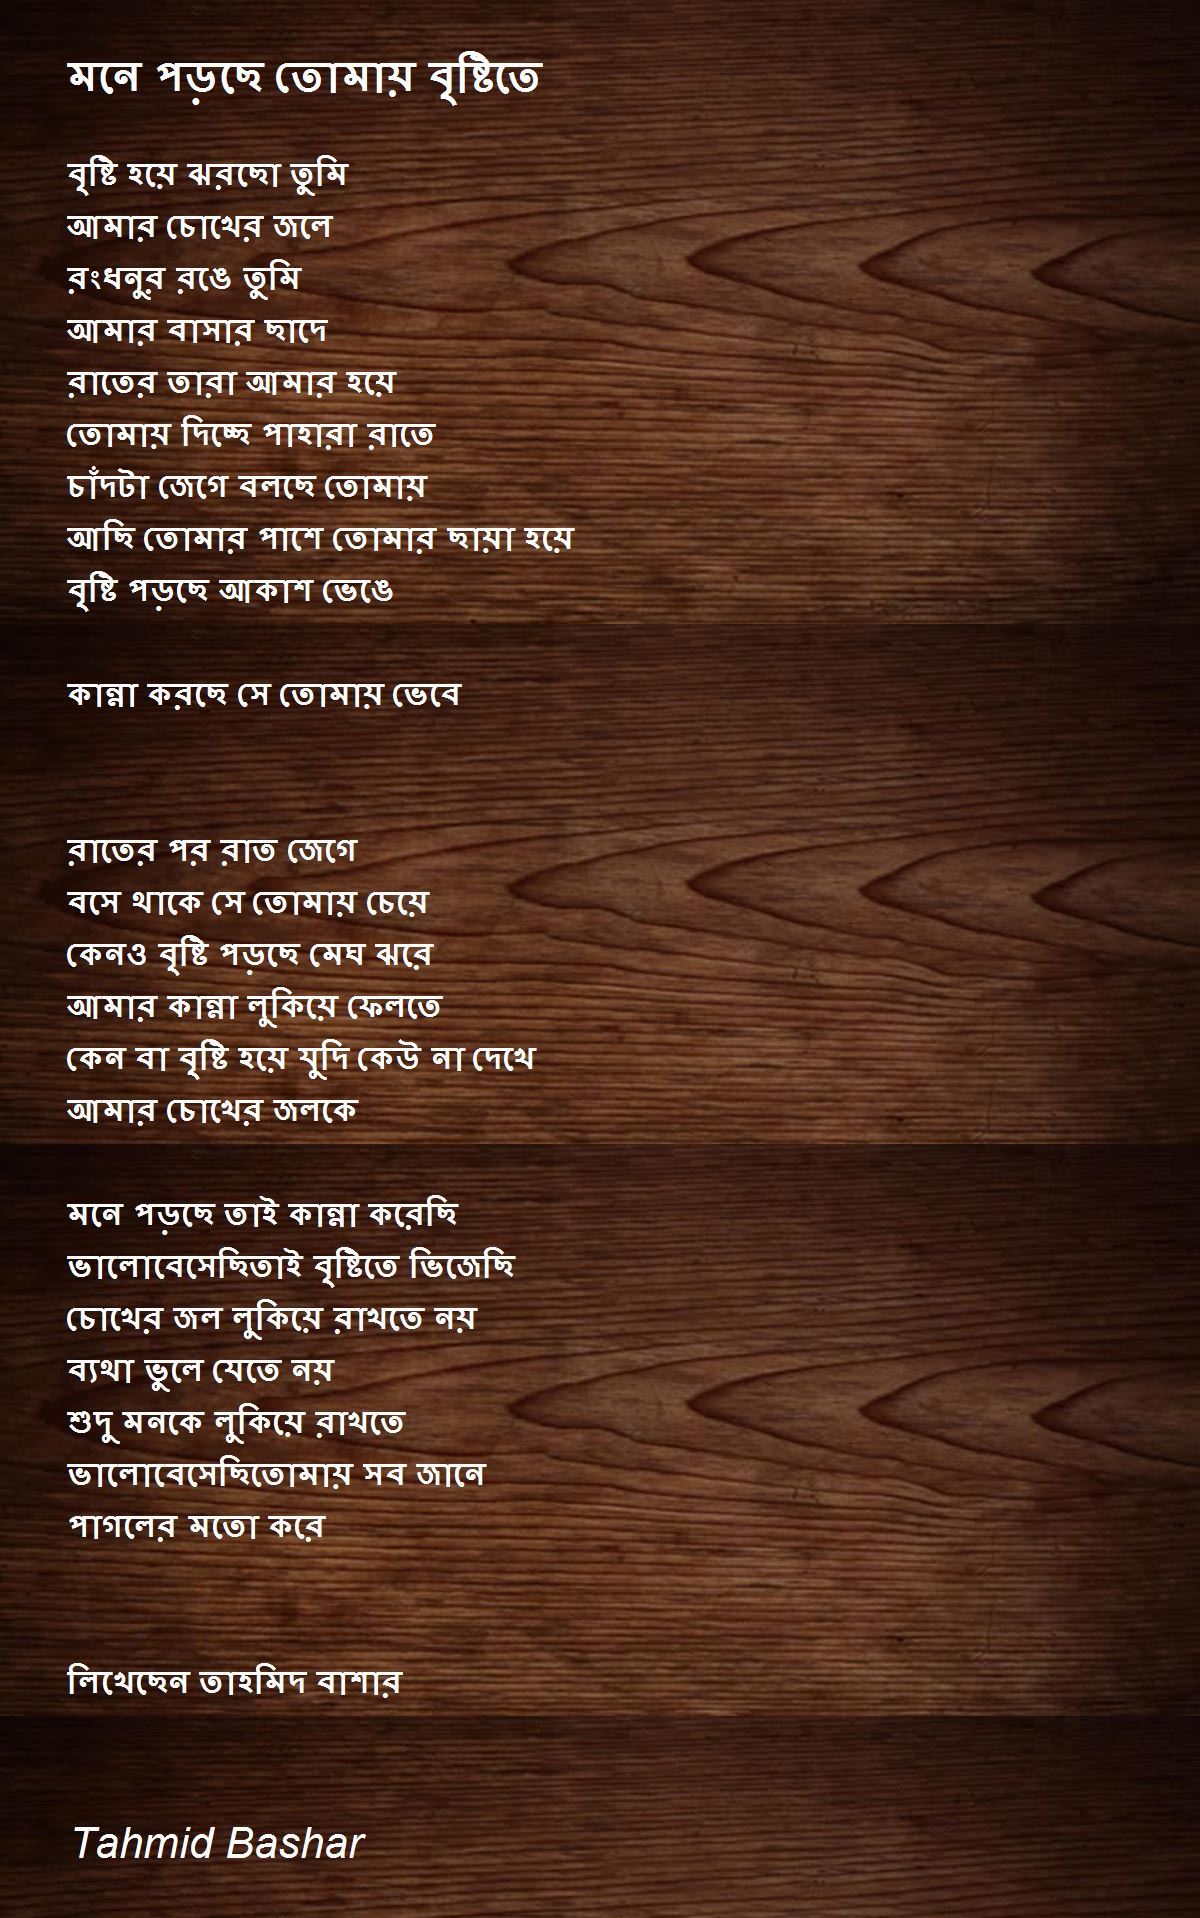 মনে পড়ছে তোমায় বৃষ্টিতে
বৃষ্টি হয়ে ঝরছো তুমি
আমার চোখের জলে
রংধনুর রঙে তুমি
আমার বাসার ছাদে
রাতের তারা আমার হয়ে
তোমায় দিচ্ছে পাহারা রাতে
চাঁদটা জেগে বলছে তোমায়
আছি তোমার পাশে তোমার ছায়া হয়ে
বৃষ্টি পড়ছে আকাশ ভেঙে
কান্না করছে সে তোমায় ভেবে
রাতের পর রাত জেগে
বসে থাকে সে তোমায় চেয়ে
কেনও বৃষ্টি পড়ছে মেঘ ঝরে
আমার কান্না লুকিয়ে ফেলতে
কেন বা বৃষ্টি হয়ে যুদি কেউ না দেখে
আমার চোখের জলকে
মনে পড়ছে তাই কান্না করেছি
ভালোবেসেছিতাই বৃষ্টিতে ভিজেছি
চোখের জল লুকিয়ে রাখতে নয়
ব্যথা ভুলে যেতে নয়
শুদু মনকে লুকিয়ে রাখতে
ভালোবেসেছিতোমায় সব জানে
পাগলের মতো করে
লিখেছেন তাহমিদ বাশার
Tahmid Bashar